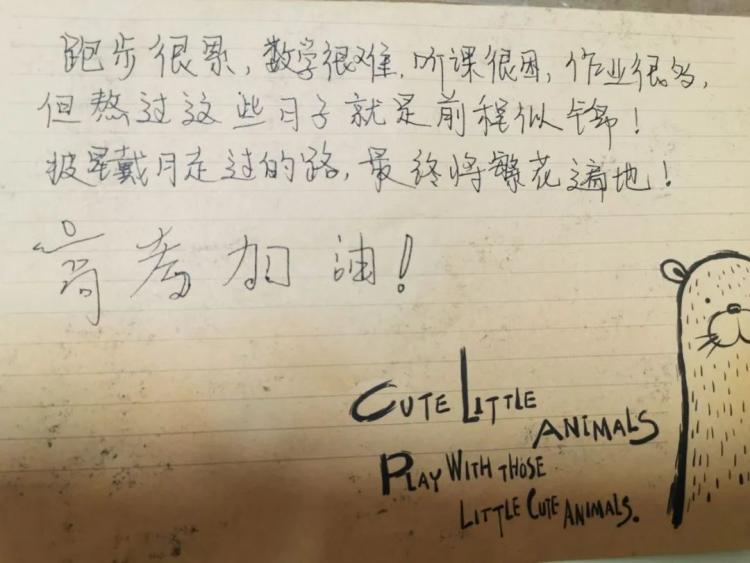 跑步很累，数学很难，听课很困，作业很多，
但熬过这些日子就是前程似锦！
披星戴月走过的路，最终将繁花遍地！
高考加油！
CUTE LITTLE
ANIMALS
PLAY WITH THOSE
LITTLE CUTE ANIMALS.